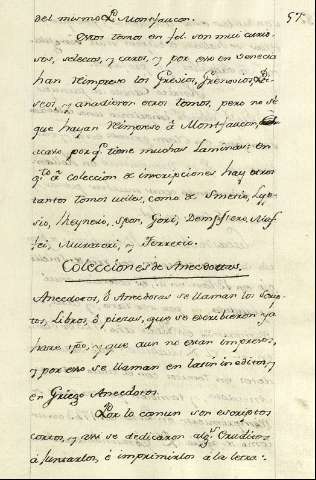 57.
del mismo P. Montfaucon.
Otros tomos en fol. son mui curio-
sos, selectos, y caros, y por eso en Venecia
han reimpreso los Grevios, Gronovios,
y añadieron otros tomos, pero no sé
que hayan reimpreso a Montfaucon,
acaso porq.e tiene muchas laminas: en
q.to a coleccion de inscripciones hay otros
tantos tomos utiles, como de Smecio, Lyp-
sio, Reynesio, Spon, Gori, Dempstero, Maf-
fei, Muratori, y
Colecciones de Anecdotas.
Anecdotos, ó Anecdotas se llaman los escri-
tos, Libros, ó piezas, que se escribieron ya
hace tpo, y que aun no estan impresos,
y por eso se llaman en latin ineditos, y
en Griego Anecdotos.
Por lo comun son escriptos
cortos, y asi se dedicaron alg.s Eruditos
á juntarlos, é imprimirlos á la letra: